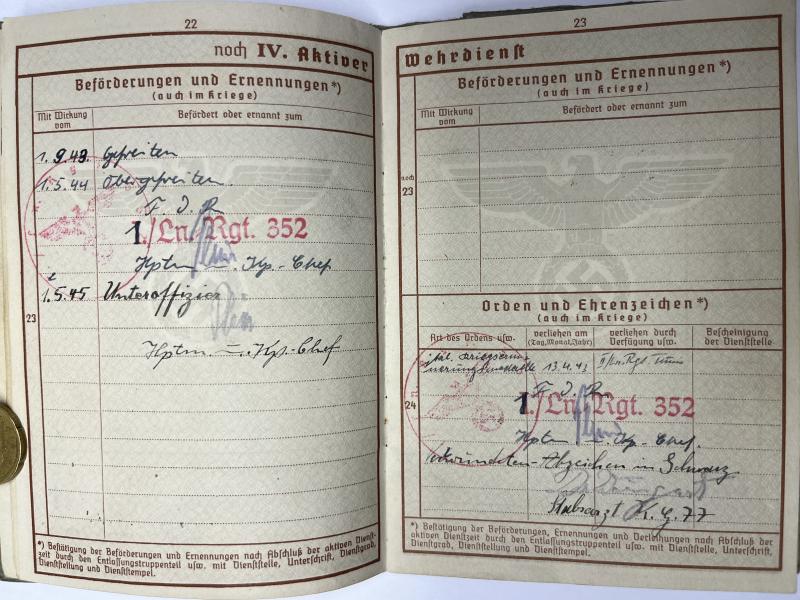 22
noch IV. Aktiver
Beförderungen und Ernennungen*)
(auch im Kriege)
Mit Wirkung vom
Befördert oder ernannt zum
1.9.43. Gefreiten
1.5.44 Obergefreiten.
F. d. R.
I./Ln.-Rgt. 352
Hptm. u. Kp.-Chef
1.5.45 Unteroffizier
Hptm. u. Kp.-Chef
23
*) Bestätigung der Beförderungen und Ernennungen nach Abschluß der aktiven Dienst-
zeit durch den Entlassungstruppenteil usw. mit Dienststelle, Unterschrift, Dienstgrad,
Dienststellung und Dienststempel.
23
Wehrdienst
Beförderungen und Ernennungen*)
(auch im Kriege)
Mit Wirkung vom
Befördert oder ernannt zum
noch
23
Orden und Ehrenzeichen*)
(auch im Kriege)
Art des Ordens usw.
verliehen am (Tag, Monat, Jahr)
verliehen durch Verfügung usw.
Bescheinigung der Dienststelle
13.4.43
F. d. R.
24
I./Ln.-Rgt. 352
Hptm. u. Kp.-Chef.
Verwundeten-Abzeichen in Schwarz
Stabsarzt K.G. 77
*) Bestätigung der Beförderungen, Ernennungen und Verleihungen nach Abschluß der
aktiven Dienstzeit durch den Entlassungstruppenteil usw. mit Dienststelle, Unterschrift,
Dienstgrad, Dienststellung und Dienststempel.